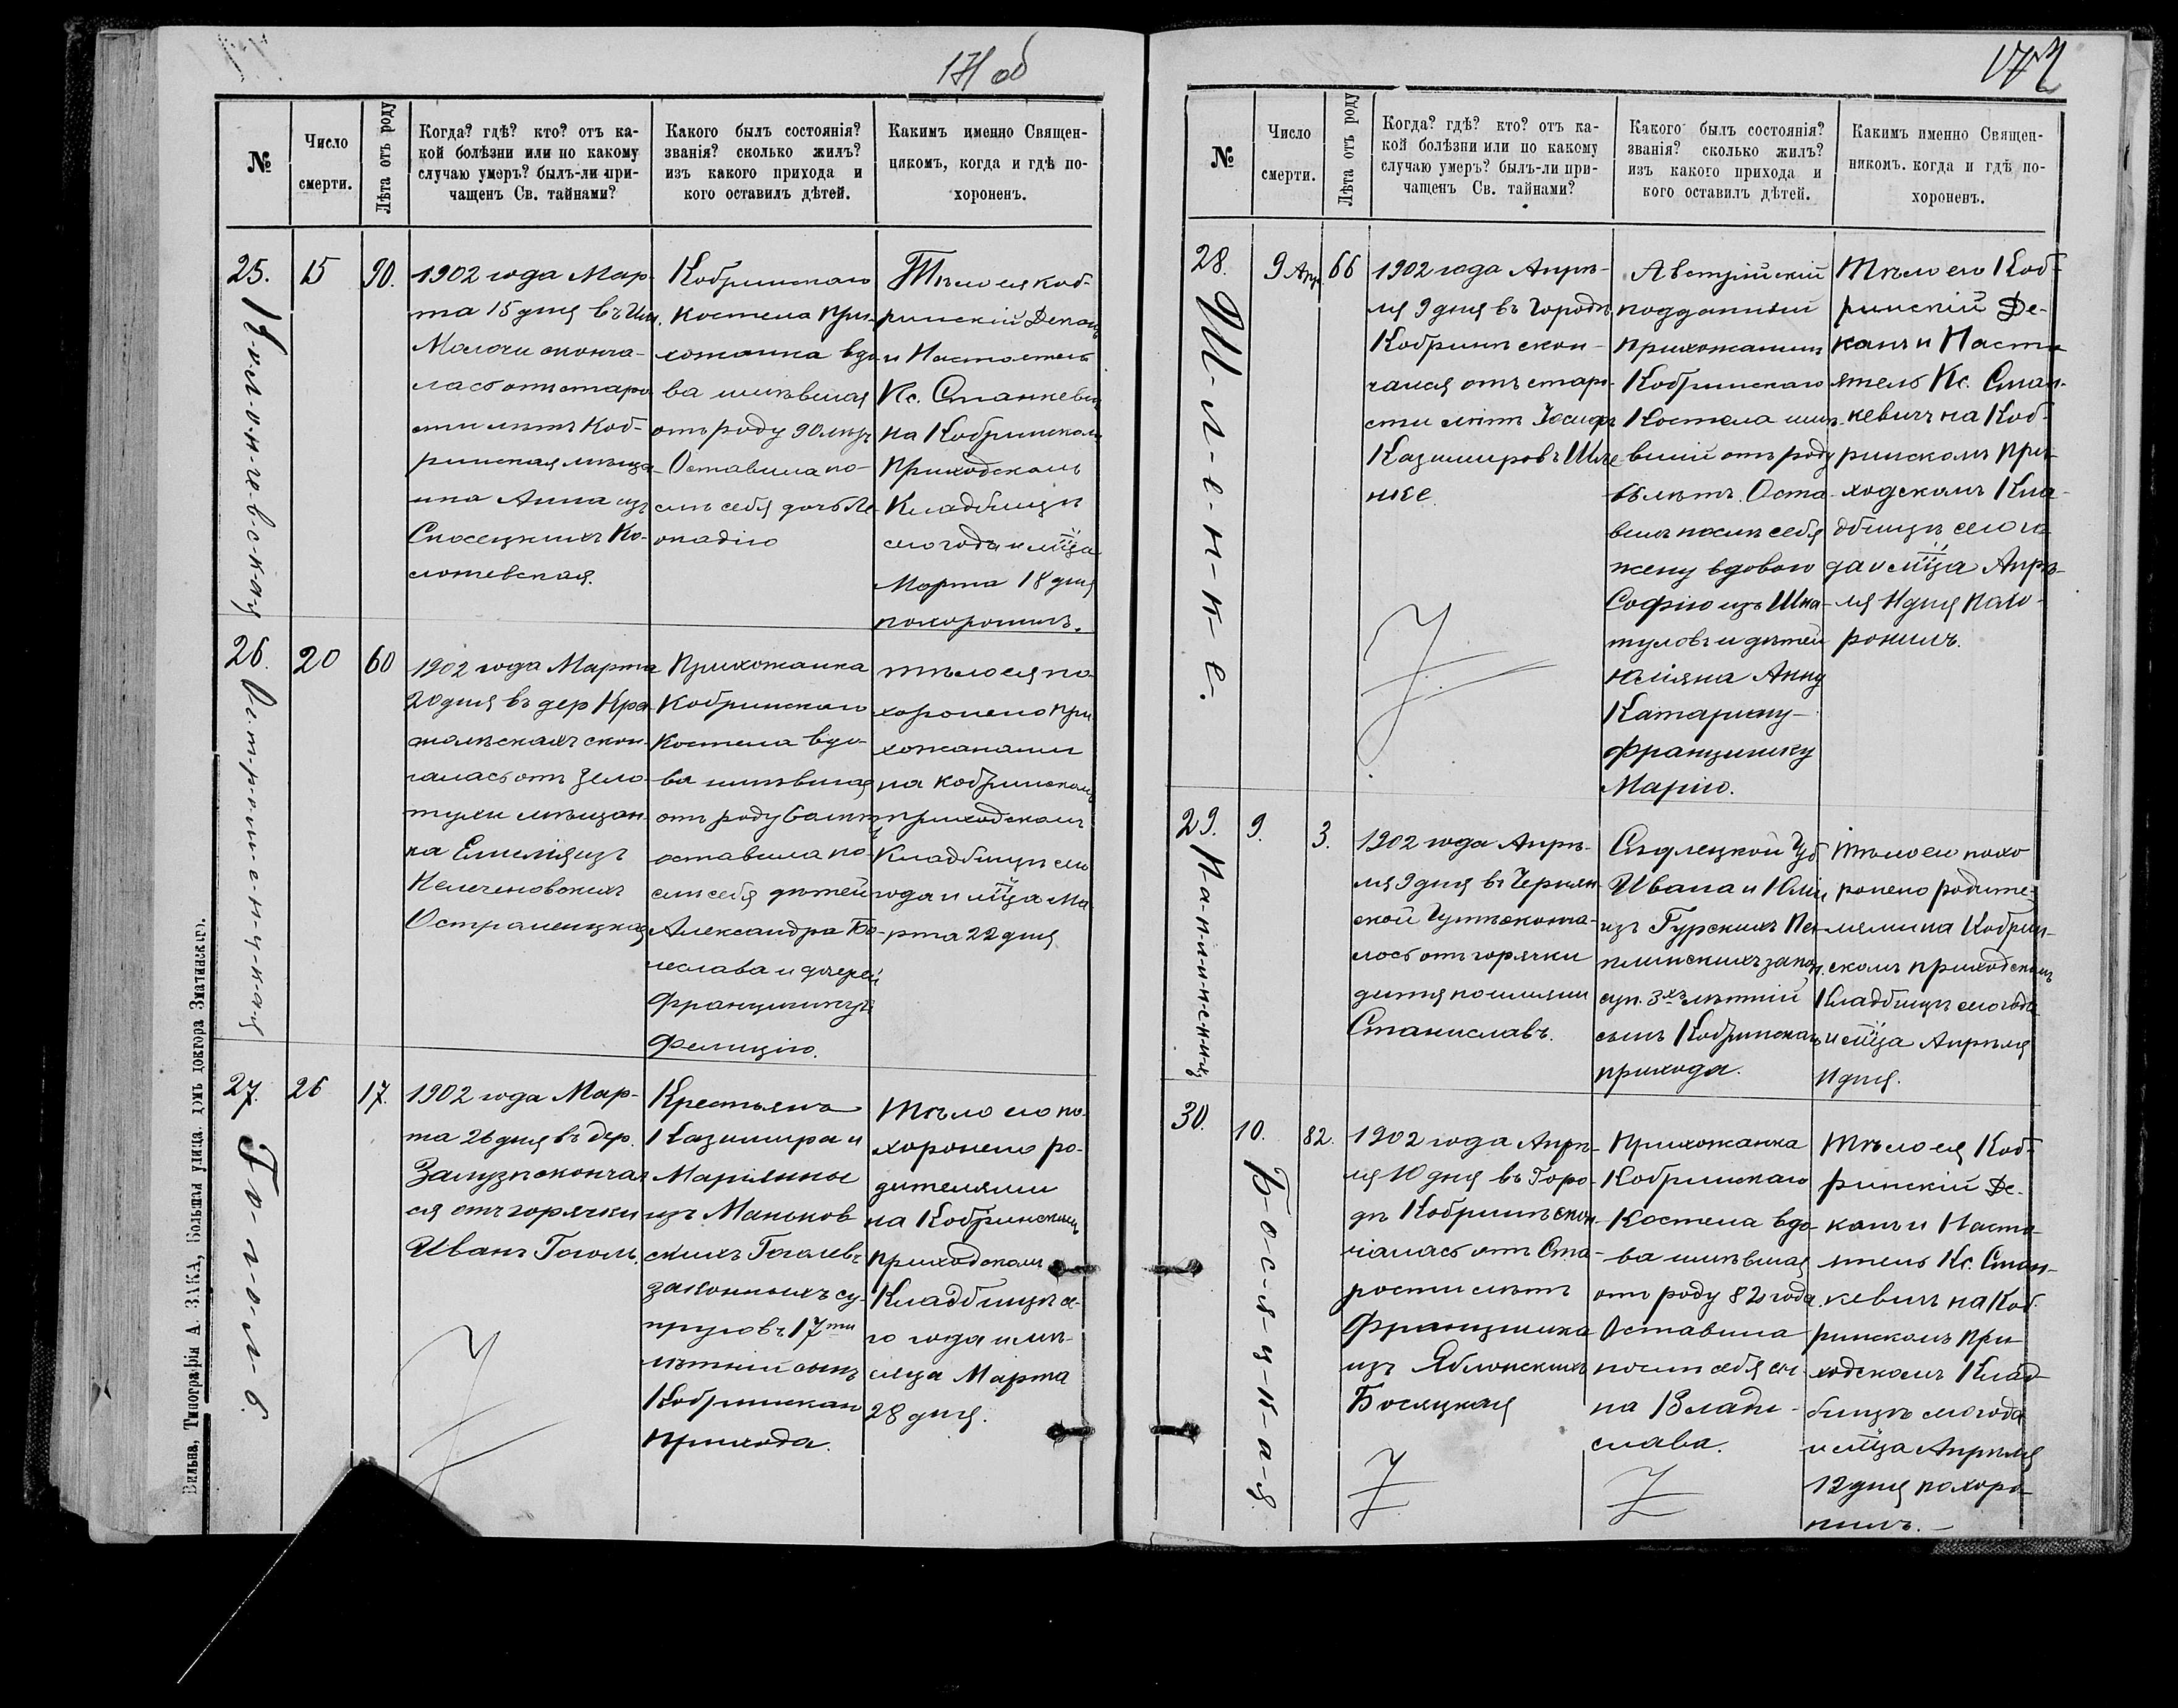 171 об
№
Число
смерти.
Лѣта отъ роду
Когда? гдѣ? кто? отъ ка-
кой болѣзни или по какому
случаю умеръ? былъ-ли при-
чащенъ Св. тайнами?
Какого былъ состоянія?
званія? сколько жилъ?
изъ какого прихода и
кого оставилъ дѣтей.
Какимъ именно Священ-
никомъ, когда и гдѣ по-
хороненъ.
25.
15
90.
1902 года Мар-
та 15 дня въ
скончa-
лась отъ старо
сти лѣтъ Коб-
ринская мѣща-
нка Анна изъ
Ко-
ложевская.
Кобринскаго
костела при-
хожанка вдо
ва жившая
отъ роду 90 лѣтъ
Оставила по-
слѣ себя дочь Ле-
окадію
Тѣло ея Коб-
ринскій Деканъ
и Настоятель
Кс. Станкевичъ
на Кобринскомъ
приходскомъ
Кладбищѣ
сего года и мца
Марта 18 дня
похоронилъ.
26.
О-с-т-р-о-м-е-н-ц-к-а-я
20
60
1902 года Марта
20 дня въ дер
скон-
чалась отъ золо
тухи мѣщан-
ка Емилія изъ
Остроменцкая
Прихожанка
Кобринскаго
Костела вдо-
ва жившая
отъ роду 60 лѣтъ
оставила по-
слѣ себя дѣтей
Александра Бо-
леслава и дочерей
Францишку
Фелицію.
тѣло ея по-
хоронено при
хожанами
на Кобринскомъ
приходскомъ
Кладбищѣ сего
года и мца Ма
рта 22 дня
27.
Г-о-г-о-л-ь.
26
17.
1902 года Мар-
та 26 дня въ дер.
Залузѣ скончал
ся отъ горячки
Иванъ Гоголь.
Крестьянъ
Казимира и
Маріянны
изъ Маньков
скихъ Гоголевъ
законныхъ су-
пруговъ 17ти
лѣтній сынъ
Кобринскаго
прихода.
Тѣло его по-
хоронено ро-
дителями
на Кобринскомъ
приходскомъ
Кладбищѣ се-
го года и мѣ-
сяца Марта
28 дня.
Вильна, Типографія А. ЗАКА, Большая улица, домъ доктора
172
№
Число
смерти.
Лѣта отъ роду
Когда? гдѣ? кто? отъ ка-
кой болѣзни или по какому
случаю умеръ? былъ-ли при-
чащенъ Св. тайнами?
Какого былъ состоянія?
званія? сколько жилъ?
изъ какого прихода и
кого оставилъ дѣтей.
Какимъ именно Священ-
никомъ. когда и гдѣ по-
хороненъ.
28.
Ш-л-е-н-к-е.
9 Апр.
66
1902 года Апрѣ-
ля 9 дня въ Городѣ
Кобринѣ скон-
чался отъ старо-
сти лѣтъ Іосифъ
Казимировъ Шле
нке
Австрійскій
подданный
прихожанинъ
Кобринскаго
Костела жи-
вшій отъ роду
66 лѣтъ. Оста-
вилъ послѣ себя
жену вдовою
Софію изъ Шка-
туловъ и дѣтей
Юліяна Анну
Катарину-
Францишку
Марію.
Тѣло его Коб-
ринскій Де-
канъ и Насто
ятель Кс. Стан-
кевичъ на Коб-
ринскомъ при-
ходскомъ Кла-
дбищѣ сего го
да и мца Апрѣ-
ля 11 дня похо-
ронилъ.
29.
9.
3.
1902 года Апрѣ-
ля 9 дня въ
ской Гутѣ сконча-
лось отъ горячки
дитя по имени
Станиславъ.
Сѣдлецкой Губ
Ивана и Юліи
изъ Гурскихъ
закон.
суп. 3хъ лѣтній
сынъ Кобринскаго
прихода.
Тѣло его похо
ронено родите-
лями на Кобрин-
скомъ приходскомъ
Кладбищѣ сего года
и мца Апрѣля
11 дня.
30.
Б-о-с-я-ц-к-а-я.
10.
82.
1902 года Апрѣ-
ля 10 дня въ Горо-
дѣ Кобринѣ скон-
чалась отъ Ста-
рости лѣтъ
Францишка
изъ Яблонскихъ
Босяцкая
Прихожанка
Кобринскаго
Костела вдо-
ва жившая
отъ роду 82 года.
Оставила
послѣ себя сы-
на Влади-
слава.
Тѣло ея Коб-
ринскій Де-
канъ и Насто
ятель Кс. Стан-
кевичъ на Коб-
ринскомъ При
ходскомъ Клад-
бищѣ сего года
и мца Апрѣля
12 дня похоро-
нилъ.